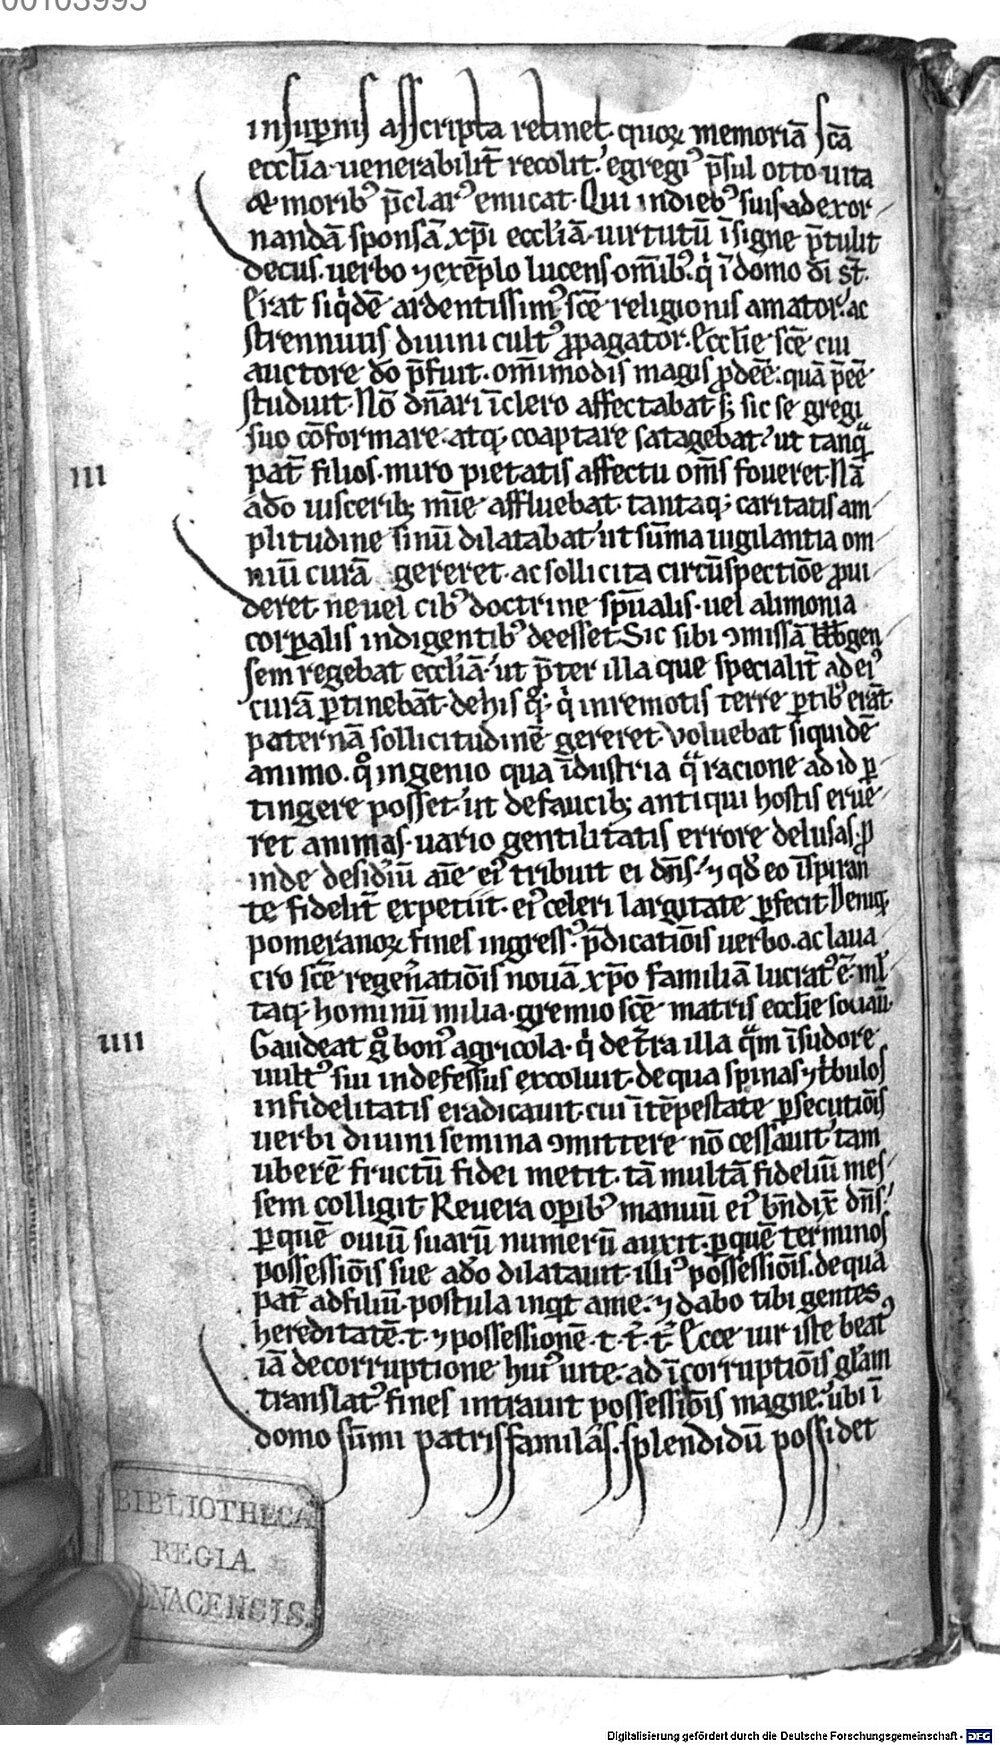 00103995
insup̄nis asscripta retinet. quoꝝ memoriā sc̄a
eccl̄ia uenerabilit̄ recolit. egregi᷒ p̄sul otto uita
& morib᷒ p̄clar᷒ emicat. Qui indieb᷒ suis adexor
nandā sponsā xp̄i eccl̄iā uirtutū īsigne p̄tulit
decus. uerbo ⁊ exēplo lucens om̄ib᷒. q̇ ī domo dī st̄.
Erat siq̇dē ardentissim᷒ sc̄e religionis amator. ac
strennuus diuini cult᷒ ꝓpagator. Eccl̄ie sc̄e cui
auctore dō p̄fuit. om̄imodis magis ꝓdeē. quā p̄eē
studuit. Nō dn̄ari īclero affectabat sꝫ sic se gregi
suo cōformare atqꝫ coaptare satagebat. ut tanqͣ
pat̄ filios. miro pietatis affectu om̄s foueret. Nā
III
adō uisceribꝫ mīe affluebat. tantaqꝫ caritatis am
plitudine sinū dilatabat. ut sūma uigilantia om
niū curā gereret. ac sollicita circūspectiōe ꝓui
deret. ne uel cib᷒ doctrine sp̄ualis. uel alimonia
corꝑalis indigentib᷒ deesset. Sic sibi ꝯmissā bb̄gen
sem regebat eccl̄iā. ut p̄ter illa que specialit̄ ad ei᷒
curā ꝑtinebāt. de his qͦqꝫ q̇ inremotis terre ꝑtib᷒ erāt
paternā sollicitudinē gereret. Voluebat siquidē
animo. qͦ ingenio qua īdustria qͣ racione ad id ꝑ
tingere posset. ut defaucibꝫ antiqui hostis erue
ret animas. uario gentilitatis errore delusas. ꝓ
inde desid̓iū aīe ei᷒ tribuit ei dn̄s. ⁊ qd̄ eo īspiran
te fidelit̄ expetiit. ei᷒ celeri largitate ꝑfecit. Deniqꝫ
pomeranoꝝ fines ingress᷒. p̄dicatiōis uerbo. ac laua
cro sc̄e regen̄atiōis nouā xp̄o familiā lucrat᷒ ē. ml̄
taqꝫ hominū milia. gremio sc̄e matris eccl̄ie sociauit
IIII
Gaudeat gͦ bon᷒ agricola. q̇ de t̄ra illa qͣm īsudore
uult᷒ sui indefessus excoluit. dequa spinas ⁊ t̓bulos
infidelitatis eradicauit. cui ītēpestate ꝑsecutiōis
uerbi diuini semina ꝯmittere nō cessauit. tam
uberē fructū fidei metit. tā multā fideliū mes
sem colligit. Reuera oꝑib᷒ manuū ei᷒ bn̄dix̄ dn̄s.
ꝑquē ouiū suarū numerū auxit. ꝑquē terminos
possessiōis sue adō dilatauit. illi᷒ possessiōis. dequa
pat̄ adfiliū. postula inqt̓ ame. ⁊ dabo tibi gentes
hereditatē. t. ⁊ possessionē t. t̄. t̄. Ecce uir iste beat᷒
iā decorruptione hui᷒ uite. ad īcorruptiōis gl̄am
translat᷒ fines intrauit possessiōis magne. ubi ī
domo sūmi patrisfamilas. splendidū possidet
BIBLIOTHECA
REGIA
MONACENSIS.
Digitalisierung gefördert durch die Deutsche Forschungsgemeinschaft - DFG